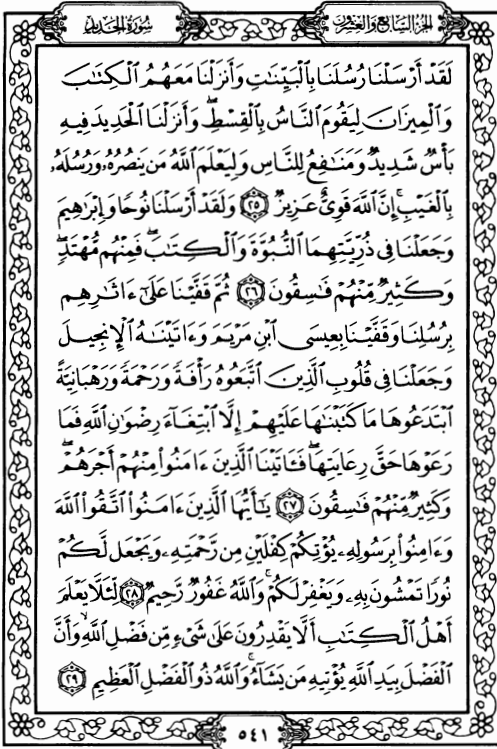 الجزء السابع والعشرون
سورة الحديد
لَقَدْ أَرْسَلْنَا رُسُلَنَا بِالْبَيِّنَٰتِ وَأَنزَلْنَا مَعَهُمُ الْكِتَٰبَ
وَالْمِيزَانَ لِيَقُومَ النَّاسُ بِالْقِسْطِ ۖ وَأَنزَلْنَا الْحَدِيدَ فِيهِ
بَأْسٌ شَدِيدٌ وَمَنَٰفِعُ لِلنَّاسِ وَلِيَعْلَمَ اللَّهُ مَن يَنصُرُهُۥ وَرُسُلَهُۥ
بِالْغَيْبِ ۚ إِنَّ اللَّهَ قَوِىٌّ عَزِيزٌ ٢٥ وَلَقَدْ أَرْسَلْنَا نُوحًا وَإِبْرَٰهِيمَ
وَجَعَلْنَا فِى ذُرِّيَّتِهِمَا النُّبُوَّةَ وَالْكِتَٰبَ ۖ فَمِنْهُم مُّهْتَدٍ ۖ
وَكَثِيرٌ مِّنْهُمْ فَٰسِقُونَ ٢٦ ثُمَّ قَفَّيْنَا عَلَىٰٓ ءَاثَٰرِهِم
بِرُسُلِنَا وَقَفَّيْنَا بِعِيسَى ابْنِ مَرْيَمَ وَءَاتَيْنَٰهُ الْإِنجِيلَ
وَجَعَلْنَا فِى قُلُوبِ الَّذِينَ اتَّبَعُوهُ رَأْفَةً وَرَحْمَةً وَرَهْبَانِيَّةً
ابْتَدَعُوهَا مَا كَتَبْنَٰهَا عَلَيْهِمْ إِلَّا ابْتِغَآءَ رِضْوَٰنِ اللَّهِ فَمَا
رَعَوْهَا حَقَّ رِعَايَتِهَا ۖ فَـَٔاتَيْنَا الَّذِينَ ءَامَنُوا۟ مِنْهُمْ أَجْرَهُمْ ۖ
وَكَثِيرٌ مِّنْهُمْ فَٰسِقُونَ ٢٧ يَٰٓأَيُّهَا الَّذِينَ ءَامَنُوا۟ اتَّقُوا۟ اللَّهَ
وَءَامِنُوا۟ بِرَسُولِهِۦ يُؤْتِكُمْ كِفْلَيْنِ مِن رَّحْمَتِهِۦ وَيَجْعَل لَّكُمْ
نُورًا تَمْشُونَ بِهِۦ وَيَغْفِرْ لَكُمْ ۚ وَاللَّهُ غَفُورٌ رَّحِيمٌ ٢٨ لِّئَلَّا يَعْلَمَ
أَهْلُ الْكِتَٰبِ أَلَّا يَقْدِرُونَ عَلَىٰ شَىْءٍ مِّن فَضْلِ اللَّهِ ۙ وَأَنَّ
الْفَضْلَ بِيَدِ اللَّهِ يُؤْتِيهِ مَن يَشَآءُ ۚ وَاللَّهُ ذُو الْفَضْلِ الْعَظِيمِ ٢٩
٥٤١